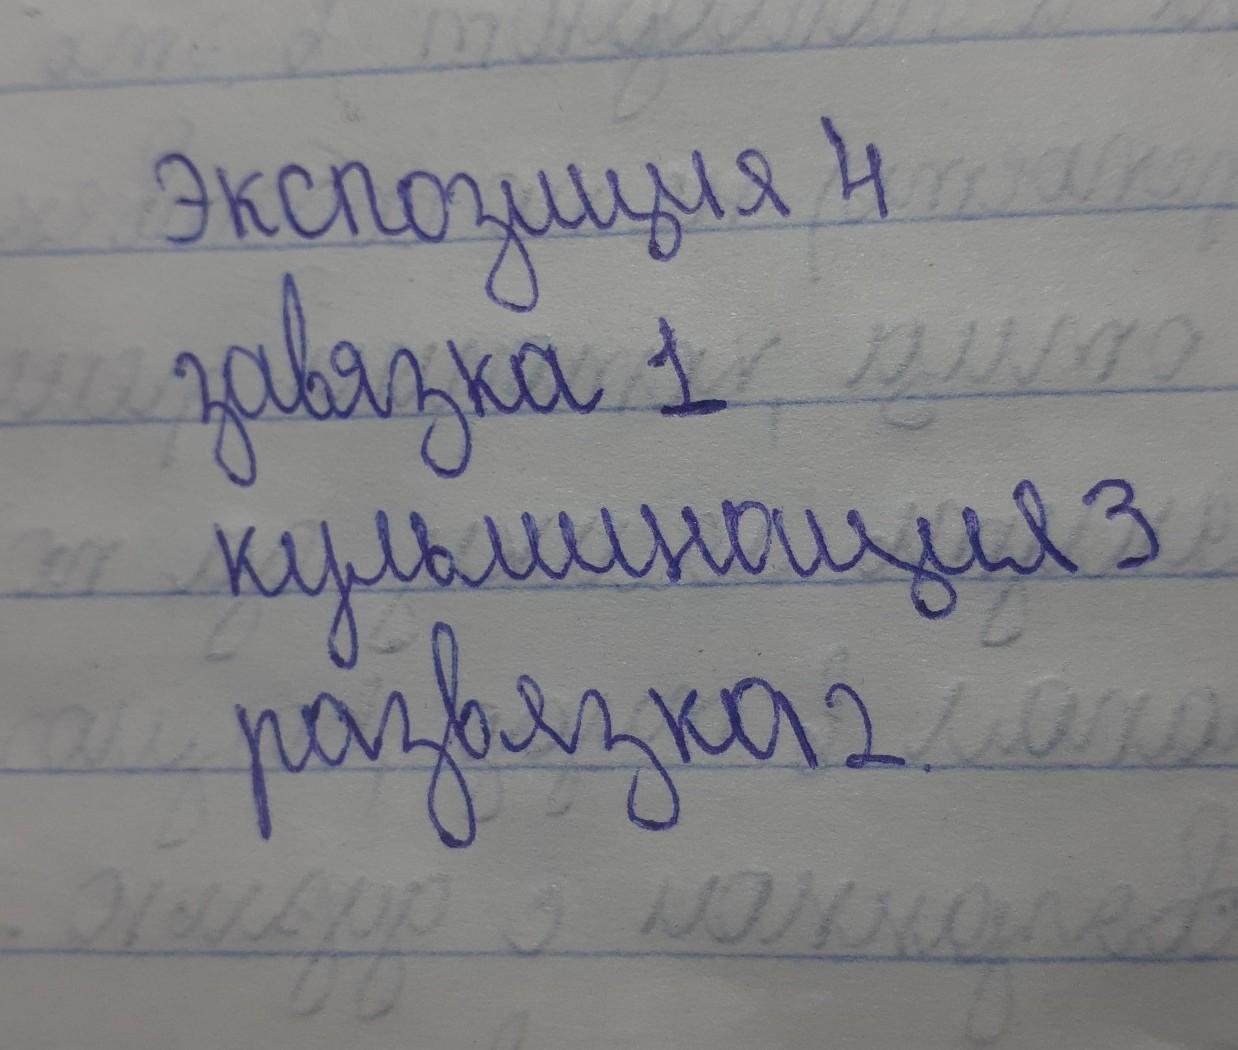 Экспозиция 4
завязка 1
кульминация 3
развязка 2.